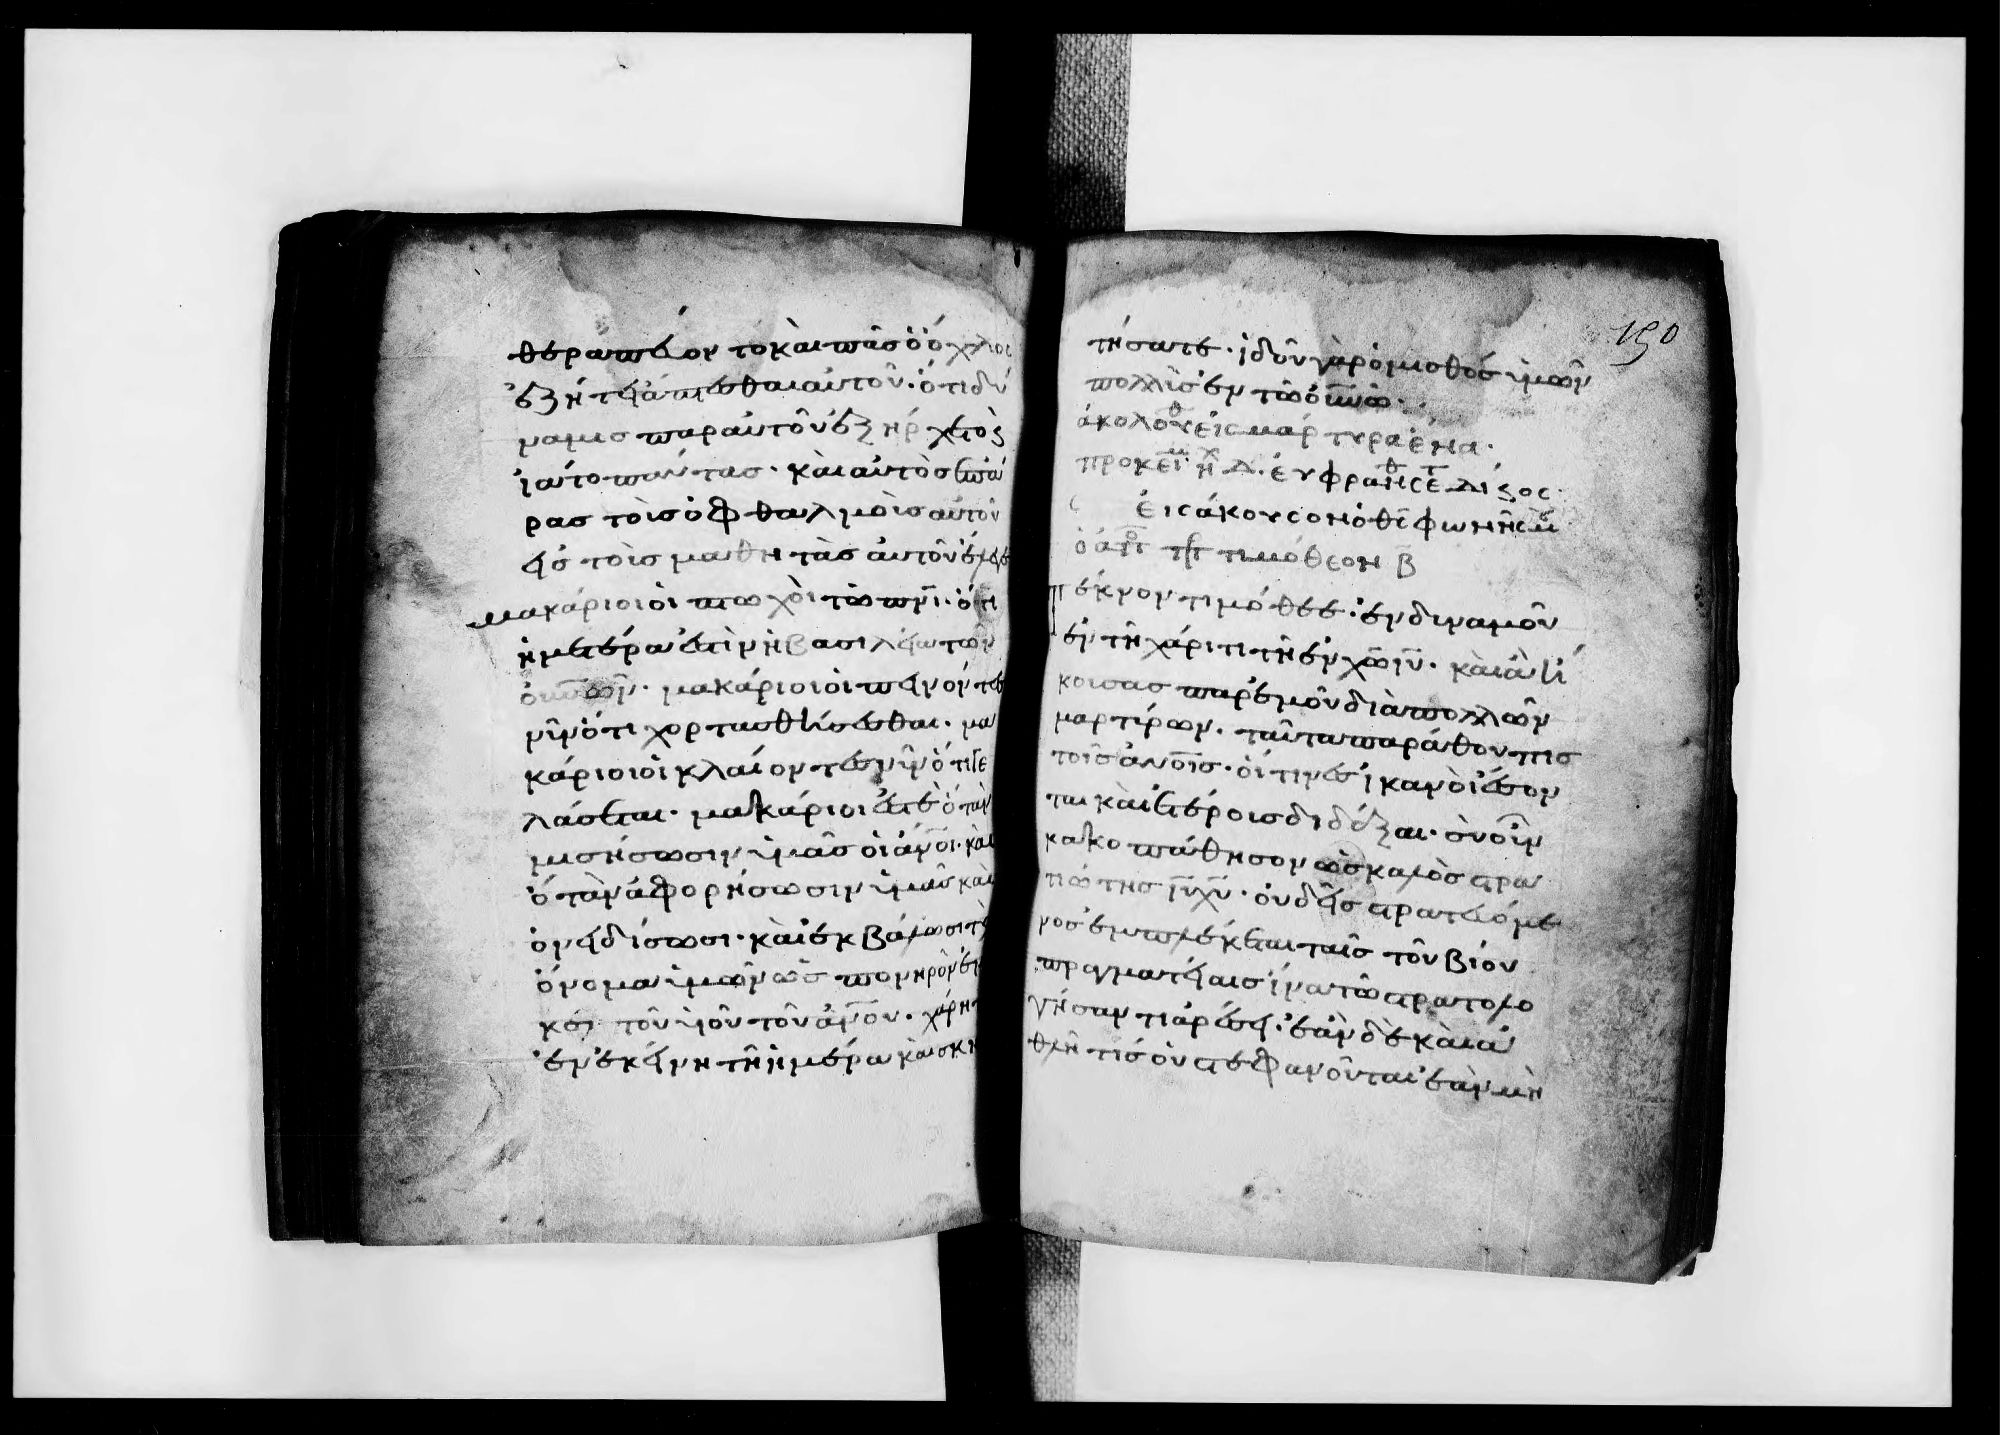 θεραπέυοντο κὰι πᾶσ ὁ ὄχλοσ
ἐζήτει ἅπτεσθαι αυτοῦ· ὅτι δύ
ναμισ παρ αυτοῦ ἐξήρχετο κ(αὶ)
ἰάτο πάντασ· κὰι αὐτὸσ ἐπά
ρασ τοὶσ ὀφθαλμὸισ αυτοῦ
εἰσ τοὶσ μαθητὰσ αυτοῦ ἔλεγε
μακάριοι ὁι πτωχὸι τῶ πνι· ὅτι
ἡμετέρα ἐστὶν ἡ βασιλεία τῶν
ὀυνῶν· μακάριοι ὁι πεινόντεσ
νῦν ὅτι χορτασθήσεσθαι· μα
κάριοι ὁι κλαίοντεσ νῦν ὅτι γε
λάσεται· μακάριοι ἐστὲ ὅταν
μισήσωσιν ὑμᾶσ ὁι ἄνοι· κὰι
ὅταν ἀφορήσωσιν ὑμᾶσ κὰι
ὀνειδίσωσι· κὰι ἐκβάλωσι τὸ
ὄνομα ὑμῶν ὡσ πονηρὸν ἕνε
κεν τοῦ υἱοῦ τοῦ ἀνου· χάρητε
ἐν ἐκείνη τῆ ἡμέρα κὰι σκηρ
150
τήσατε· ἰδοῦ γὰρ ὁ μισθόσ ὑμῶν
πολλῖσ ἐν τῶ ὀυνῶ·
ἀκολουθ εἰς μάρτυρα ἕνα·
προκειμ ηχ Δ· ἐυφρανθησετ Δίκος·
ἐισάκουσον ὁ θς φωνῆς μου
ὁ ἀποστ πρ τιμόθεον Β
Τέκνον τιμόθεε· ἐνδυναμοῦ
ἐν τῆ χάριτι τῆ ἐν χῶ ιυ· κὰι ἃ ἤ
κουσασ παρ ἐμοῦ διὰ πολλῶν
μαρτύρων· ταῦτα παράθου πισ
τοῖσ ἀνοισ· ὅιτινεσ ἱκανὸι ἔσον
ται κὰι ἑτέροισ διδάξαι· σὺ οὖν
κακοπάθησον ὡσ καλὸσ στρα
τιώτησ ιυ χυ· ὀυδεῖσ στρατευόμε
νοσ ἐμπλέκεται ταῖσ τοῦ βίου
πραγματείαισ ἵνα τῶ στρατολο
γήσαντι ἀρέσει· ἐὰν δὲ κὰι ἀ
θλῆ τισ ὀυ στεφανοῦται ἐὰν μὴ